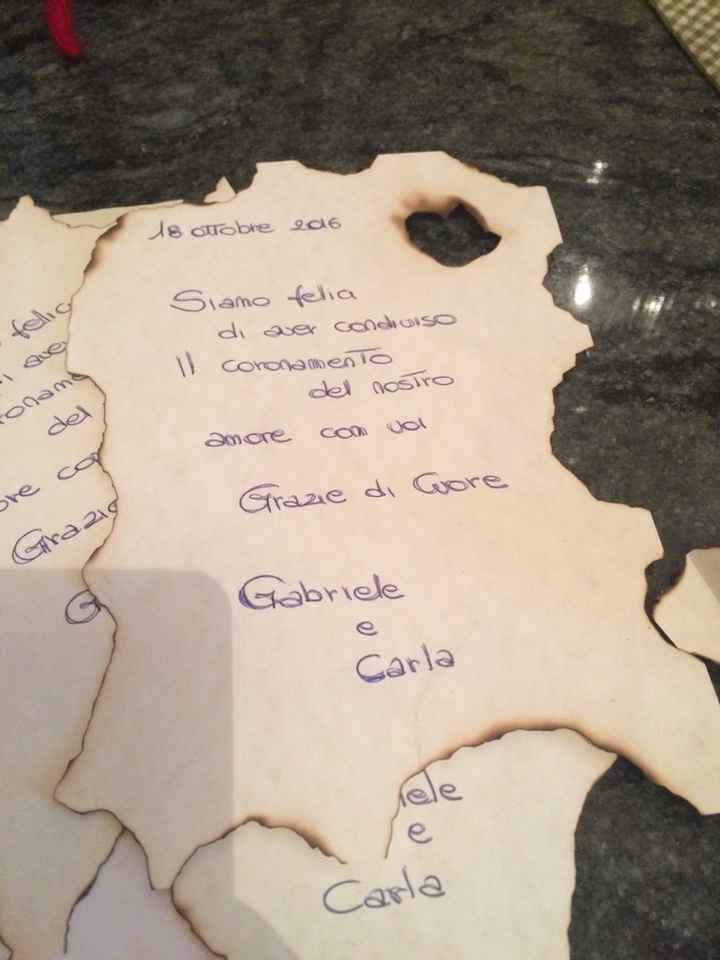 18 ottobre 2016
Siamo felici
di aver condiviso
Il coronamento
del nostro
amore con voi
Grazie di Cuore
Gabriele
e
Carla
felic
aver
oname
del
ore co
Grazie
G
iele
e
Carla